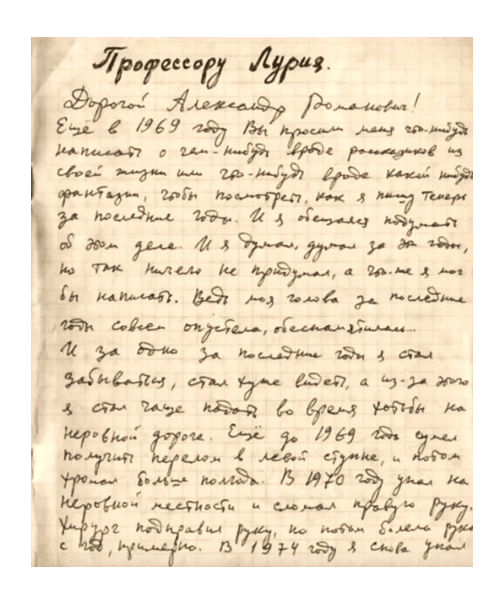 Профессору Лурия.
Дорогой Александр Романович!
Ещё в 1969 году Вы просили меня что-нибудь
написать о чем-нибудь вроде рассказиков из
своей жизни или что-нибудь вроде какой нибудь
фантазии, чтобы посмотреть, как я пишу теперь
за последние годы. И я обещался подумать
об этом деле. И я думал, думал за эти годы,
но так ничего не придумал, а что-же я мог
бы написать. Ведь моя голова за последние
годы совсем опустела, обеспамятилась...
И за одно за последние годы я стал
забываться, стал хуже видеть, а из-за этого
я стал чаще падать во время ходьбы на
неровной дороге. Ещё до 1969 года сумел
получить перелом в левой ступне, и потом
хромал больше полгода. В 1970 году упал на
неровной местности и сломал правую руку.
Хирург подправил руку, но потом болела рука
с год, примерно. В 1974 году я снова упал